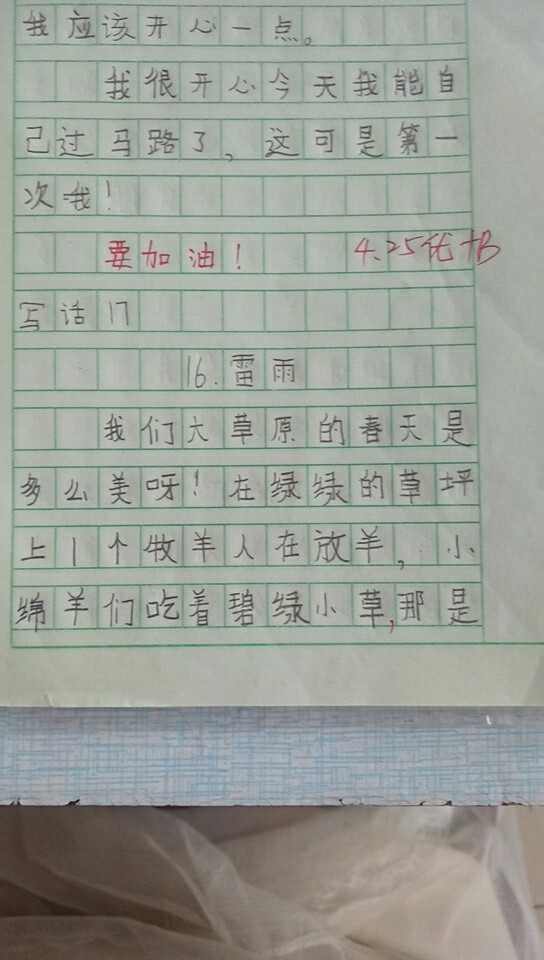 我应该开心一点。
我很开心今天我能自
己过马路了，这可是第一
次哦！
要加油！ 4.25优+B
写话17
16.雷雨
我们大草原的春天是
多么美呀！在绿绿的草坪
上1个牧羊人在放羊，小
绵羊们吃着碧绿小草，那是